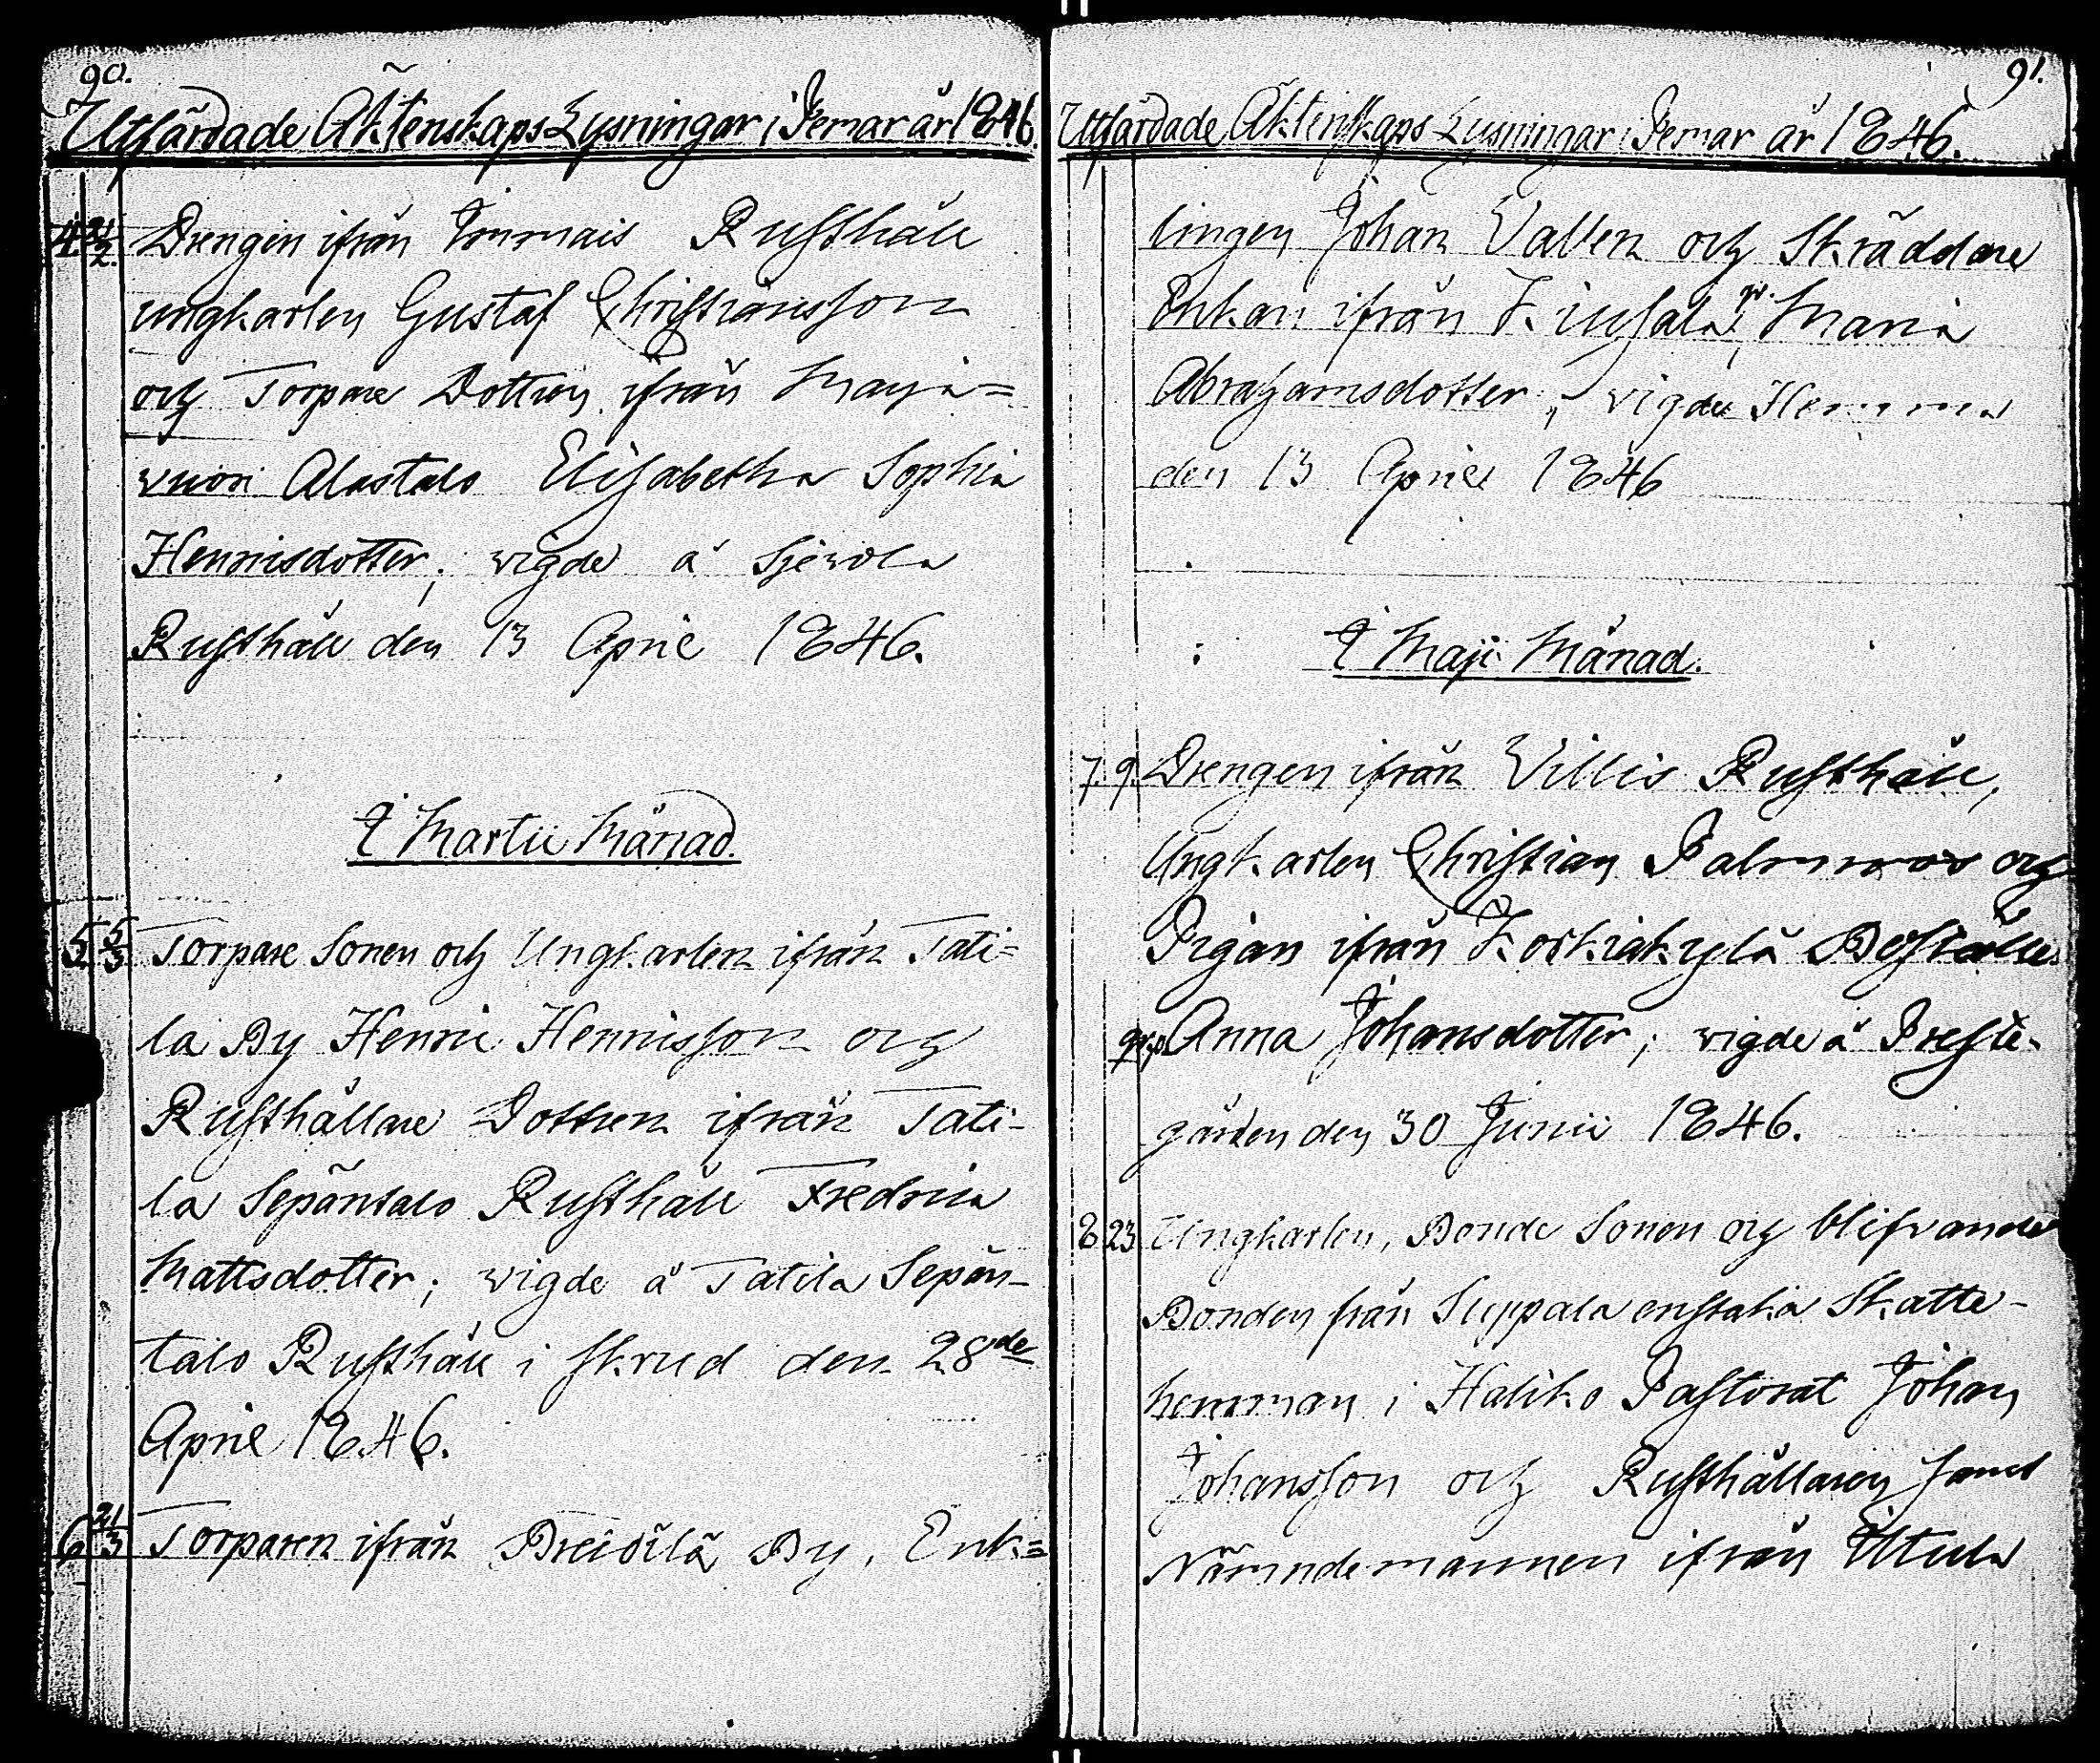 90.
Utfärdade Äktenskaps Lysningar i Pemar år 1846.
4 21/2. Drengen ifrån Rusthåll
ungkarlen Gustaf Christiansson
och Torpare Dottren ifrån Maria=
wuori Alastalo Elisabetha Sophia
Henricsdotter; vigde å
Rusthåll den 13 April 1846.
I Martii Månad.
5 5/3 Torpare Sonen och Ungkarlen ifrån Tati=
la By Henric Henricsson och
Rusthållare Dottren ifrån Tati-
la Sepäntalo Rusthåll Fredrica
Mattsdotter; vigde å Tatila Sepän-
talo Rusthåll i skrud den 28de
April 1846.
6 21/3 Torparen ifrån By, Enk=
91.
Utfärdade Äktenskaps Lysningar i Pemar år 1846.
lingen Johan Vallen och Skräddare
Enkan ifrån Maria
Abrahamsdotter; vigde Hemma
den 13 April 1846
I Maji Månad.
7. 9. Drengen ifrån Villis Rusthåll,
Ungkarlen Christian Palmroos och
Pigan ifrån Koskikylä Boställe
Anna Johansdotter; vigde å Preste-
gården den 30 Junii 1846.
8 23 Ungkarlen, Bonde Sonen och blifvande
Bonden från Suppala enstaka Skatte-
hemman i Haliko Pastorat Johan
Johansson och Rusthållaren samt
Nämndemannen ifrån